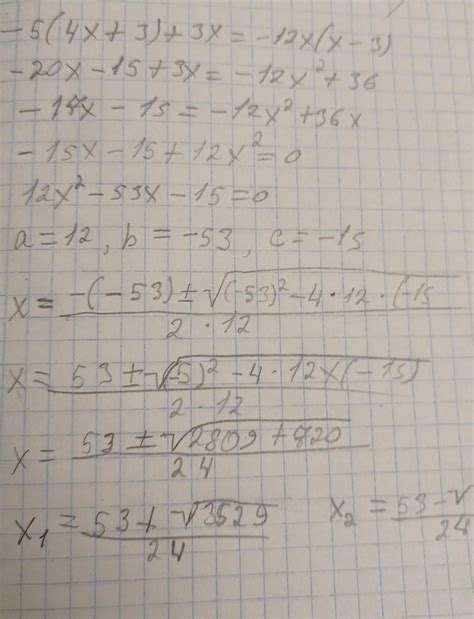 -5(4x+3)+3x=-12x(x-3)
-20x-15+3x=-12x²+36
-17x-15=-12x²+36x
-15x-15+12x²=0
12x²-53x-15=0
a=12, b=-53, c=-15
x=\frac{-(-53)±√((-53)²-4·12·(-15}{2·12}
x=\frac{53±√((-5)²-4·12x(-15)}{2·12}
x=\frac{53±√(2809+720)}{24}
x₁=\frac{53+√3529}{24} x₂=\frac{53-√}{24}